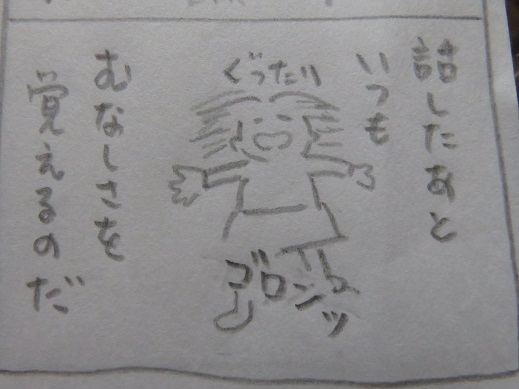 話したあと
いつも
ぐったり
ゴロンッ
むなしさを
覚えるのだ